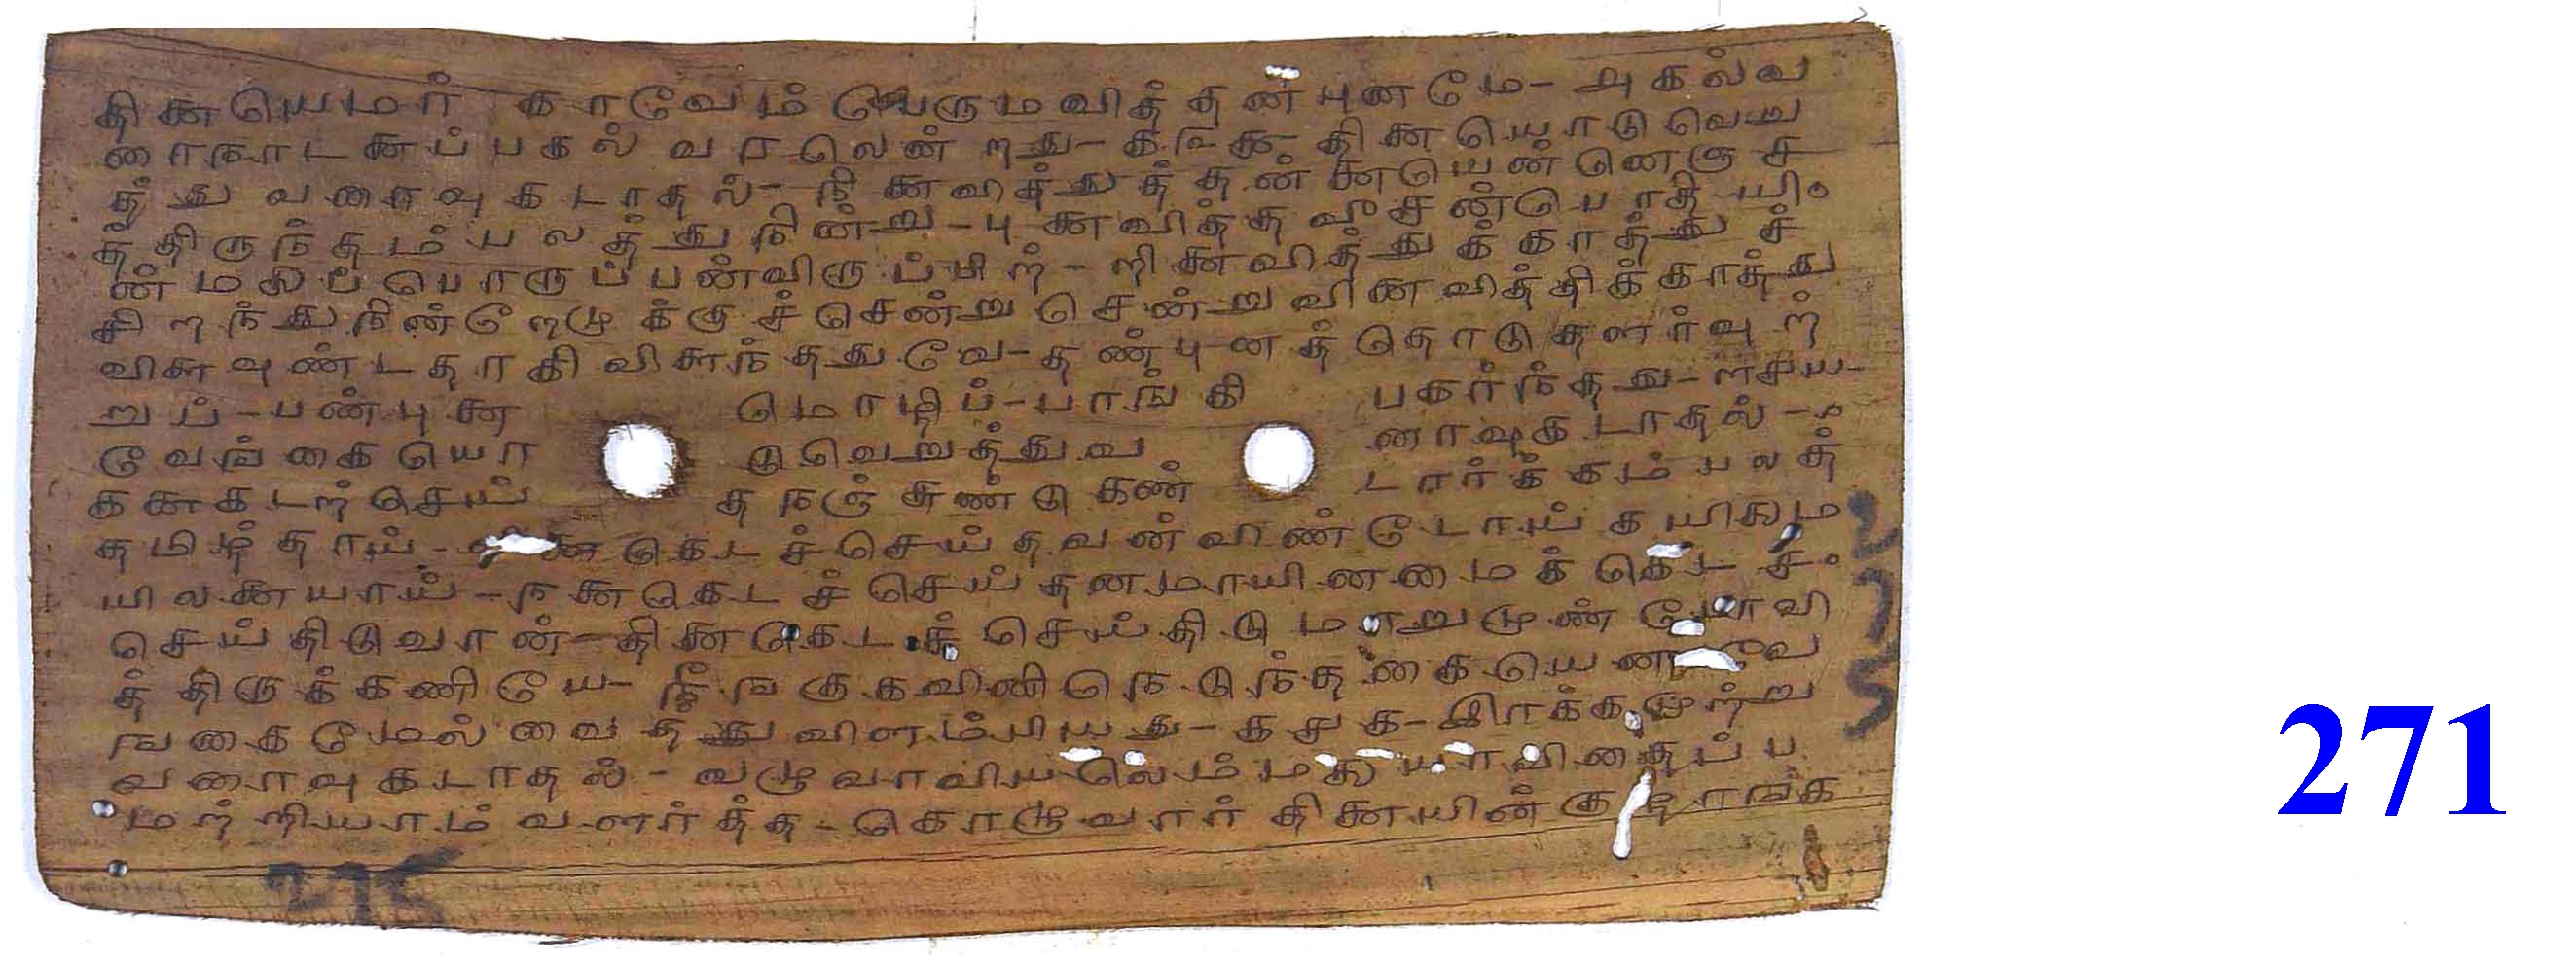 தினையெமர் காவேம் வெருமவித் தன் புனமே - அகல்வ
ரைநாடனைப் பகல் வரலென் றது - தினையொடு வெறு
த்து வரைவு கடாதல் - நினைவித்துத் தன்னையென் னெஞ்ச
த்திருந்தம் பலத்து நின்று - புனைவித்த வீசன் பொதியி
ன் மலைப் பொருப்பன் விருப்பிற் - றினைவித்துக் காத்துச்
சிறந்து நின்றேமுக்குச் சென்று சென்று வினைவித்திக் காத்து
விளைவுண்டதாகி விளைந்ததுவே - தண்புனத்தொடு தளர்வுற்
றுப் - பண்புனை மொழிப் - பாங்கி பகர்ந்தது -
வேங்கையொ டுவெறுத்துவ ரைவுகடாதல் -
கனைகடற்செய் த நஞ்சுண்டு கண் டார்க்கம்பலத்
தமிழ்தாய் - கெடச்செய்தவன் விண்டோய் கயிலைம
யிலனையாய் - நனைகெடச் செய்தனமாயினமைக் கெடச்
செய்திடுவான் - தினைகெடச் செய்திடுமாறுமுண் டோவி
த்திருக்கணியே - நீங்குகவினி நெடுந்தகையென வே
ங்கைமேல் வைத்து விளம்பியது - இரக்கமுற்று
வரைவு கடாதல் - வழுவாவியலெம் மலையாவிதைப்ப
மற்றியாம் வளர்த்த - கொழுவார் தினையின் குழாங்க
275
275
271